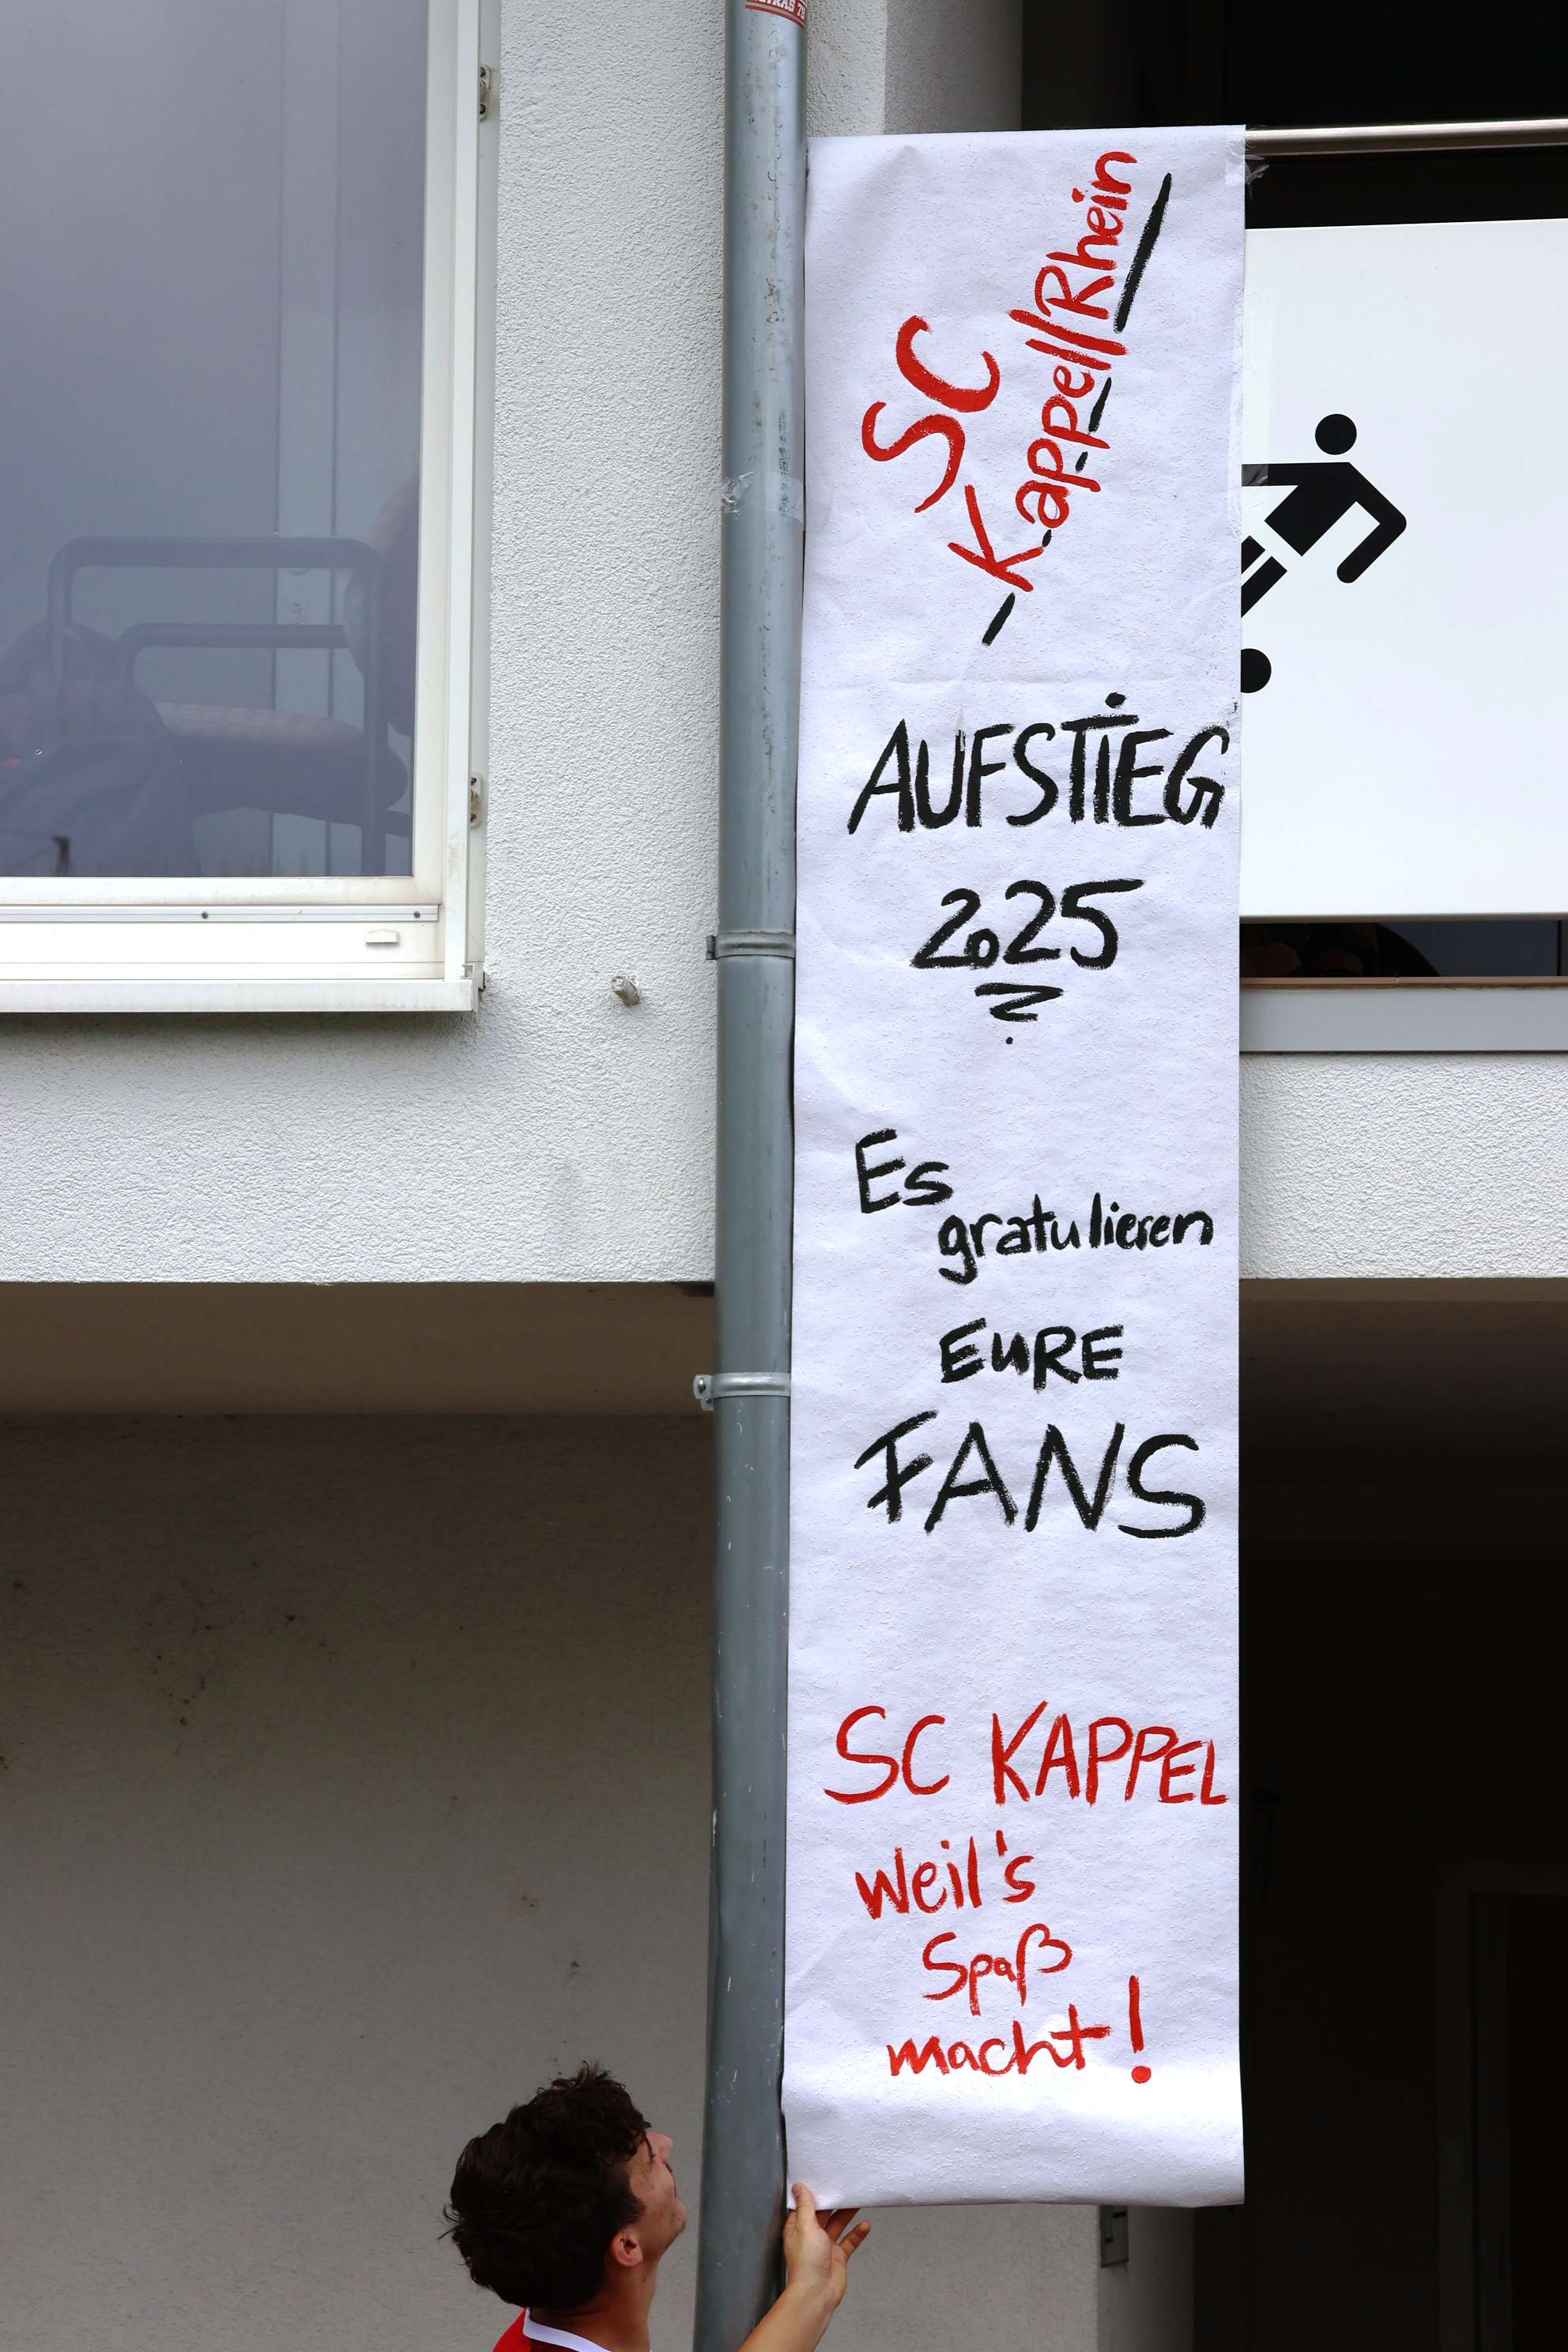 SC
Kappel/Rhein
AUFSTIEG
2025
Es
gratulieren
EURE
FANS
SC KAPPEL
weil's
Spaß
macht!